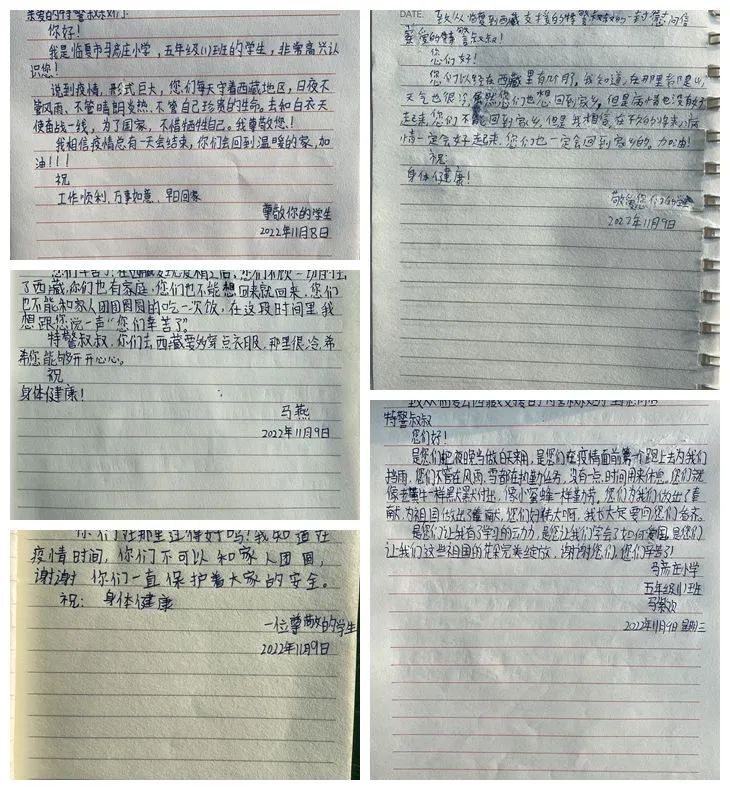 亲爱的特警叔叔们:
你好!
我是临夏市马彦庄小学,五年级(1)班的学生,非常高兴认
识您!
说到疫情,形式巨大,您们每天守着西藏地区,日夜不
管风雨、不管晴朗炎热、不管自己珍贵的生命。去和白衣天
使奋战一线,为了国家,不惜牺牲自己。我尊敬您!
我相信疫情总有一天会结束,你们会回到温暖的家,加
油!!!
祝
工作顺利、万事如意、早日回家
尊敬你的学生
2022年11月8日
了西藏,你们也有家庭,您们也不能想回来就回来,您们
也不能和家人团团圆圆的吃一次饭,在这段时间里我
想跟您说一声“您们辛苦了”。
特警叔叔,你们去西藏要多穿点衣服,那里很冷,希
希您能够开开心心。
祝
身体健康!
马燕
2022年11月9日
你们在那里过得好吗!我知道在
疫情时间,你们不可以和家人团圆,
谢谢你们一直保护着大家的安全。
祝:身体健康
一位尊敬的学生
2022年11月9日
DATE. 致从临夏到西藏支援的特警叔叔的一封慰问信
敬爱的特警叔叔!
您们好!
您们以经在西藏里有几个月。我知道,在那里都是山,
天气也很冷,虽然您们也想回到家乡,但是病情也没有好
起来,您们不能回到家乡,但是我相信,在不久的将来,病
情一定会好起来,您们也一定会回到家乡的,加油!
祝
身体健康!
敬爱您们的学生
2022年11月9日
致从临夏去西藏支援的特警叔叔的一封慰问信
特警叔叔
您们好!
是您们把夜晚当做白天来用,是您们在疫情面前第一个跑上去为我们
挡雨,您们不管在风雨、雪都在执勤任务,没有一点时间用来休息。您们就
像老黄牛一样默默付出,像小蜜蜂一样勤劳。您们为我们做出了贡
献,为祖国做出了贡献,您们好伟大啊,我长大定要向您们看齐。
是您们让我有了学习的动力,是您让我们学会了如何爱国,是您们
让我们这些祖国的花朵完美绽放,谢谢您们,您们辛苦了!
马彦庄小学
五年级(1)班
马紫欢
2022年11月9日 星期三